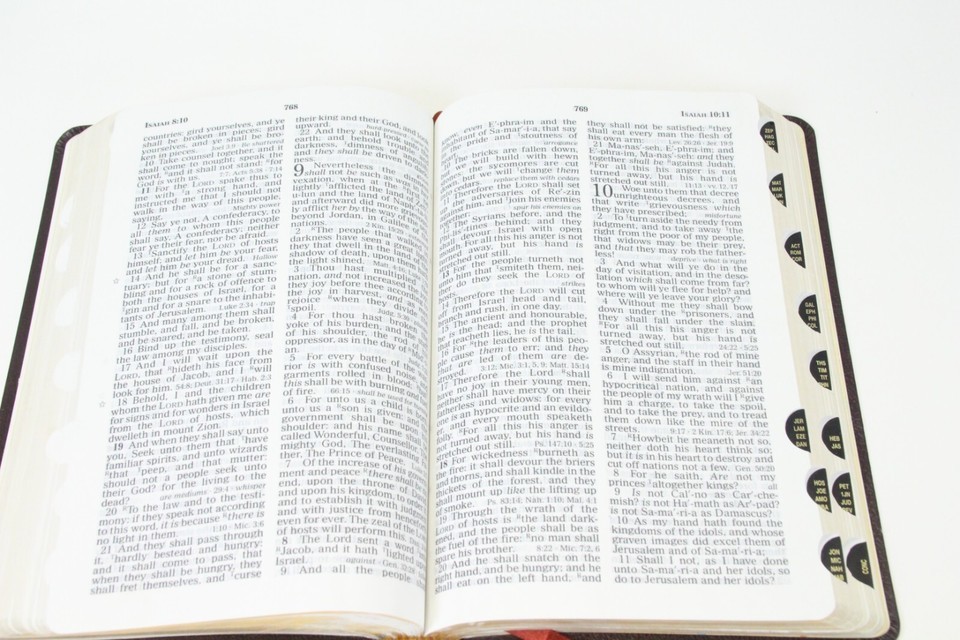 ISAIAH 8:10
768
countries: gird yourselves, and ye
shall be broken in pieces; gird
yourselves, and ye shall be bro-
ken in pieces.
10 Take counsel together, and it
shall come to nought; speak the
word, and it shall not stand: for
God is with us.
11 For the LORD spake thus to
me with a strong hand, and
instructed me that I should not
walk in the way of this people,
saying,
12 Say ye not, A confederacy, to
all them to whom this people
shall say, A confederacy; neither
fear ye their fear, nor be afraid.
13 Sanctify the LORD of hosts
himself; and let him be your fear,
and let him be your dread.
14 And he shall be for a sanc-
tuary; but for a stone of stum-
bling and for a rock of offence to
both the houses of Israel, for a
gin and for a snare to the inhabi-
tants of Jerusalem.
15 And many among them shall
stumble, and fall, and be broken,
and be snared, and be taken.
16 Bind up the testimony, seal
the law among my disciples.
17 And I will wait upon the
LORD, that hideth his face from
the house of Jacob, and I will
look for him.
18 Behold, I and the children
whom the LORD hath given me are
for signs and for wonders in Israel
from the LORD of hosts, which
dwelleth in mount Zion.
19 And when they shall say unto
you, Seek unto them that have
familiar spirits, and unto wizards
that peep, and that mutter:
should not a people seek unto
their God? for the living to the
dead?
20 To the law and to the testi-
mony: if they speak not according
to this word, it is because there is
no light in them.
21 And they shall pass through
it, hardly bestead and hungry:
and it shall come to pass, that
when they shall be hungry, they
shall fret themselves, and curse
their king and their God, and look
upward.
22 And they shall look
earth; and behold trouble
darkness, dimness of
and they shall be driven to
ness.
9 Nevertheless the
shall not be such as
vexation, when at the
lightly afflicted the land
ulun and the land of Naph
and afterward did more griev
afflict her by the way of the
beyond Jordan, in Galilee of
nations.
2 The people that walked
darkness have seen a great
they that dwell in the land
shadow of death, upon them
the light shined.
3 Thou hast multiplied
nation, and not increased
they joy before thee according
the joy in harvest, and as
rejoice when they divide
spoil.
4 For thou hast broken
yoke of his burden, and the
of his shoulder, the rod of
oppressor, as in the day of
an.
5 For every battle of the
rior is with confused noise,
garments rolled in blood;
this shall be with burning and
of fire.
6 For unto us a child is
unto us a son is given: and
government shall be upon his
shoulder: and his name shall
called Wonderful, Counsellor,
mighty God, The everlasting
ther, The Prince of Peace.
7 Of the increase of his govern
ment and peace there shall be
end, upon the throne of David,
and upon his kingdom, to order
and to establish it with judg
and with justice from henceforth
even for ever. The zeal of the
of hosts will perform this.
8 The Lord sent a word
Jacob, and it hath lighted
Israel.
9 And all the people
769
ISAIAH 10:11
know, even E'-phra-im and the
inhabitant of Sa-mar'-i-a, that say
the pride and stoutness of
The bricks are fallen down,
we will build with hewn
the sycomores are cut
but we will change them
cedars.
Therefore the LORD shall set
the adversaries of Re'-zin
against him, and join his enemies
The Syrians before, and the
Philistines behind; and they
shall devour Israel with open
mouth. For all this his anger is not
turned away, but his hand is
stretched out still.
13 For the people turneth not
unto him that smiteth them, nei-
ther do they seek the LORD of
hosts.
Therefore the LORD will cut
off from Israel head and tail,
branch and rush, in one day.
The ancient and honourable,
he is the head; and the prophet
that teacheth lies, he is the tail.
16 For the leaders of this peo-
ple cause them to err; and they
that are led of them are de-
stroyed.
17 Therefore the Lord shall
have no joy in their young men,
neither shall have mercy on their
fatherless and widows: for every
one is an hypocrite and an evildo-
er, and every mouth speaketh
folly. For all this his anger is
not turned away, but his hand is
stretched out still.
18 For wickedness burneth as
the fire: it shall devour the briers
and thorns, and shall kindle in the
thickets of the forest, and they
shall mount up like the lifting up
of smoke.
19 Through the wrath of the
LORD of hosts is the land dark-
ened, and the people shall be as
the fuel of the fire: no man shall
spare his brother.
20 And he shall snatch on the
right hand, and be hungry; and he
shall eat on the left hand, and
they shall not be satisfied: they
shall eat every man the flesh of
his own arm:
21 Ma-nas'-seh, E'-phra-im; and
E'-phra-im, Ma-nas'-seh: and they
together shall be against Judah.
For all this his anger is not
turned away, but his hand is
stretched out still.
10 Woe unto them that decree
unrighteous decrees, and
that write grievousness which
they have prescribed;
2 To turn aside the needy from
judgment, and to take away the
right from the poor of my people,
that widows may be their prey,
and that they may rob the father-
less!
3 And what will ye do in the
day of visitation, and in the deso-
lation which shall come from far?
to whom will ye flee for help? and
where will ye leave your glory?
4 Without me they shall bow
down under the prisoners, and
they shall fall under the slain.
For all this his anger is not
turned away, but his hand is
stretched out still.
5 O Assyrian, the rod of mine
anger, and the staff in their hand
is mine indignation.
6 I will send him against an
hypocritical nation, and against
the people of my wrath will I give
him a charge, to take the spoil,
and to take the prey, and to tread
them down like the mire of the
streets.
7 Howbeit he meaneth not so,
neither doth his heart think so;
but it is in his heart to destroy and
cut off nations not a few. Gen. 50:20
8 For he saith, Are not my
princes altogether kings?
9 Is not Cal'-no as Car'-che-
mish? is not Ha'-math as Ar'-pad?
is not Sa-ma'-ri-a as Damascus?
10 As my hand hath found the
kingdoms of the idols, and whose
graven images did excel them of
Jerusalem and of Sa-ma'-ri-a;
11 Shall I not, as I have done
unto Sa-ma'-ri-a and her idols, so
do to Jerusalem and her idols?
ZEP
HAG
MAT
MAR
ACT
ROM
COR
GAL
EPH
PHI
COL
THS
TIM
TIT
JER
LAM
EZE
DAN
HEB
JAS
HOS
JOE
AMO
PET
1JN
JUD
JON
MIC
NAH
CONC